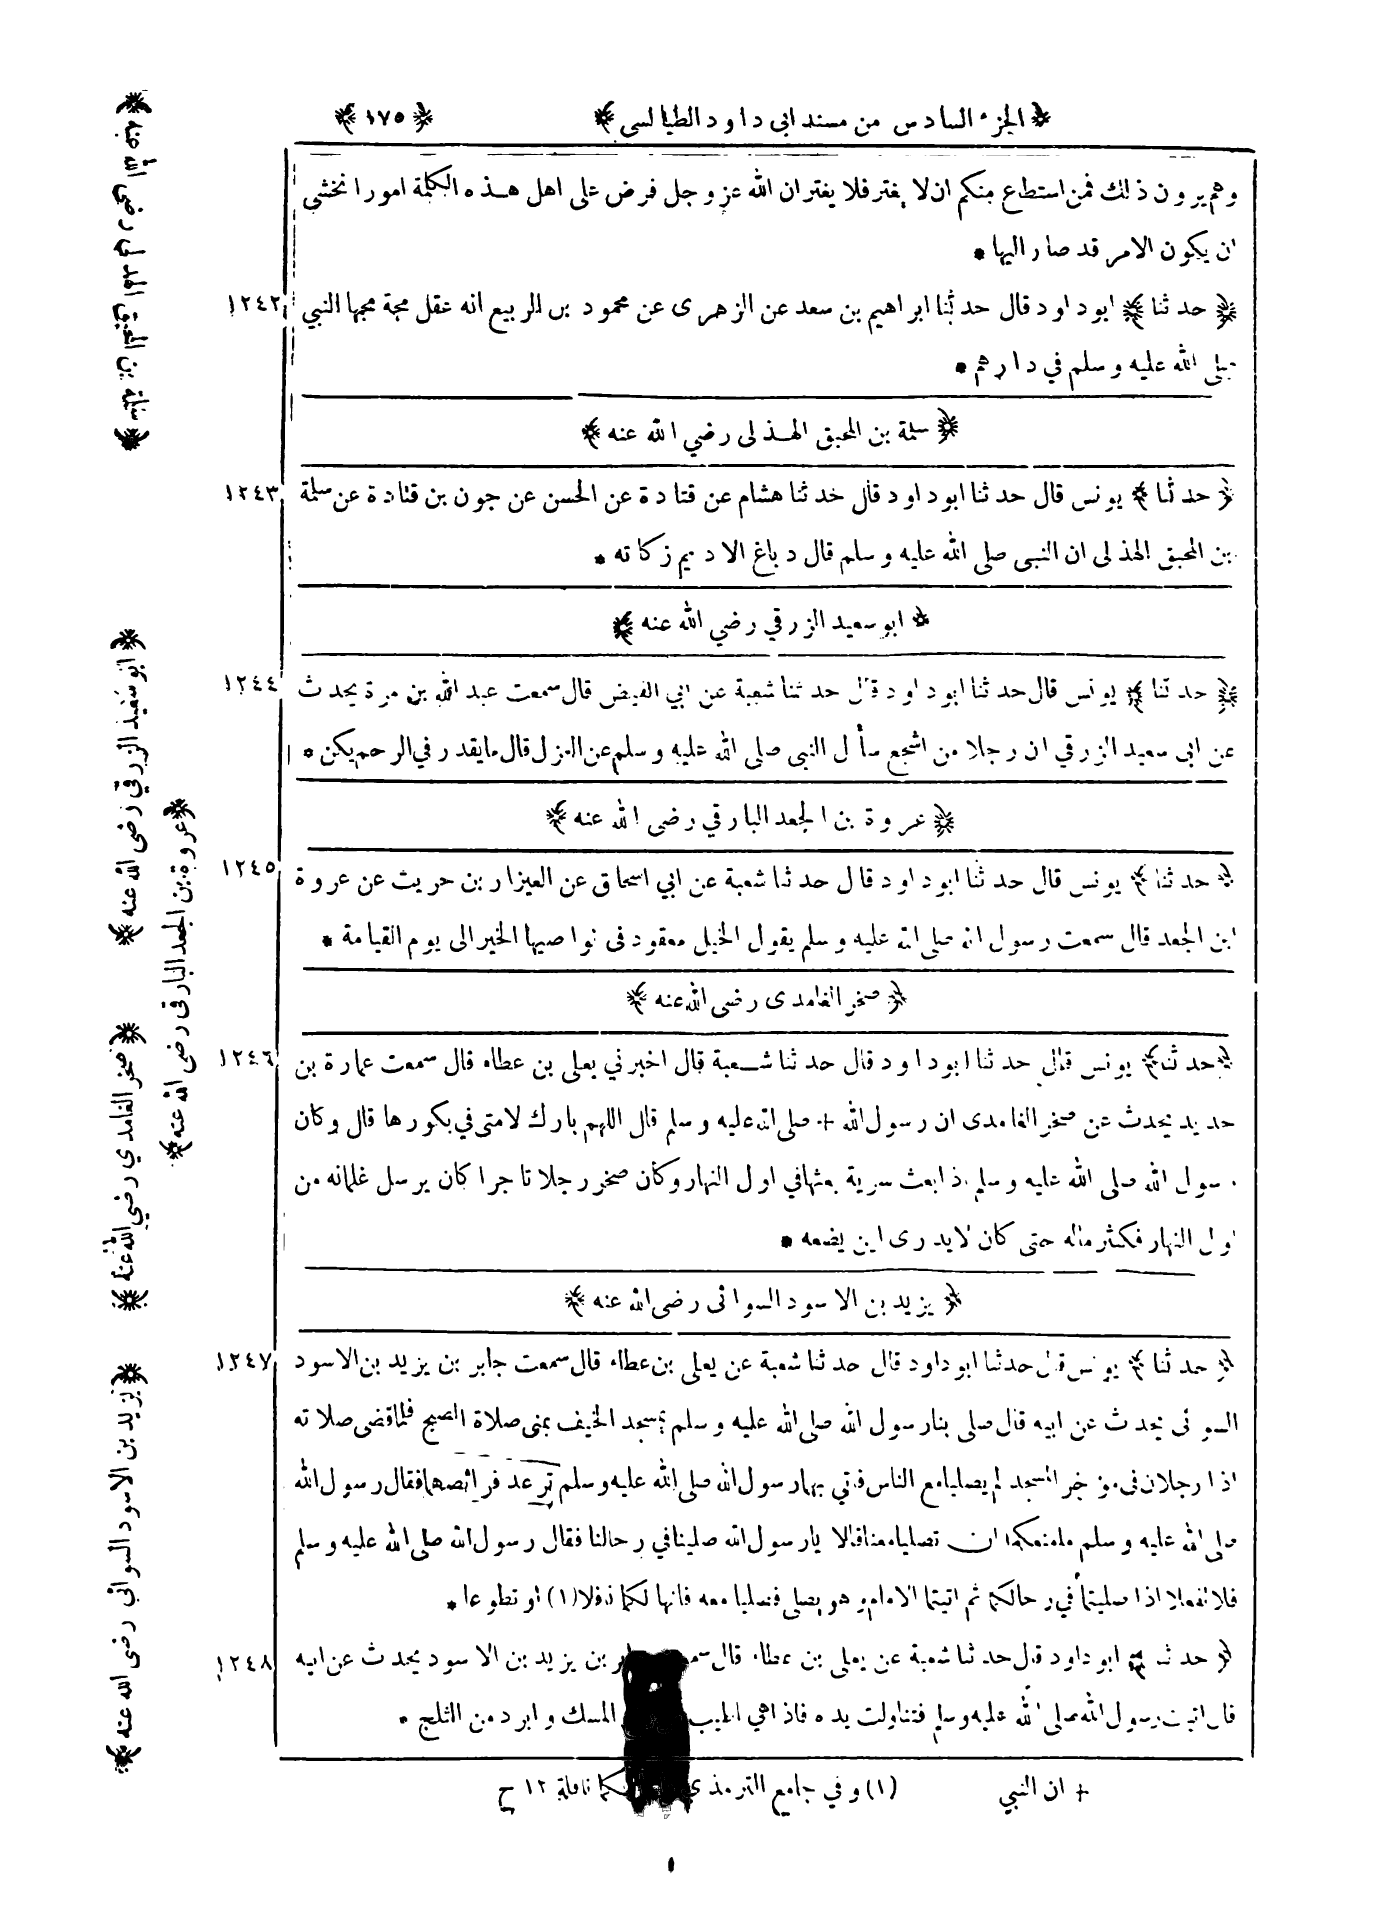 ﴿ الجزء السادس من مسند ابى داود الطيالسى ﴾ ﴿ ١٧٥ ﴾
وهم يرون ذلك فمن استطاع منكم ان لا يغتر فلا يغتر ان الله عز وجل فرض على اهل هذه الكلمة امورا نخشى
ان يكون الامر قد صار اليها *
١٢٤٢ ﴿ حدثنا ﴾ ابوداود قال حدثنا ابراهيم بن سعد عن الزهرى عن محمود بن الربيع انه عقل مجة مجها النبي
صلى الله عليه وسلم في دارهم *
﴿ سلمة بن المحبق الهذلى رضي الله عنه ﴾
١٢٤٣ ﴿ حدثنا ﴾ يونس قال حدثنا ابوداود قال حدثنا هشام عن قتادة عن الحسن عن جون بن قتادة عن سلمة
بن المحبق الهذلى ان النبى صلى الله عليه وسلم قال دباغ الاديم زكاته *
﴿ ابو سعيد الزرقي رضي الله عنه ﴾
١٢٤٤ ﴿ حدثنا ﴾ يونس قال حدثنا ابوداود قال حدثنا شعبة عن ابي الفيض قال سمعت عبد الله بن مرة يحدث
عن ابى سعيد الزرقي ان رجلا من اشجع سأل النبى صلى الله عليه وسلم عن العزل قال ما يقدر في الرحم يكن *
﴿ عروة بن الجعد البارقي رضى الله عنه ﴾
١٢٤٥ ﴿ حدثنا ﴾ يونس قال حدثنا ابوداود قال حدثنا شعبة عن ابي اسحاق عن العيزار بن حريث عن عروة
ابن الجعد قال سمعت رسول الله صلى الله عليه وسلم يقول الخيل معقود فى نواصيها الخير الى يوم القيامة *
﴿ صخر الغامدى رضى الله عنه ﴾
١٢٤٦ ﴿ حدثنا ﴾ يونس قال حدثنا ابوداود قال حدثنا شعبة قال اخبرني يعلى بن عطاء قال سمعت عمارة بن
حديد يحدث عن صخر الغامدى ان رسول الله + صلى الله عليه وسلم قال اللهم بارك لامتى في بكورها قال وكان
رسول الله صلى الله عليه وسلم اذا بعث سرية بعثها في اول النهار وكان صخر رجلا تاجرا كان يرسل غلمانه من
اول النهار فكثر ماله حتى كان لا يدرى اين يضعه *
﴿ يزيد بن الاسود السوائى رضى الله عنه ﴾
١٢٤٧ ﴿ حدثنا ﴾ يونس قال حدثنا ابوداود قال حدثنا شعبة عن يعلى بن عطاء قال سمعت جابر بن يزيد بن الاسود
السوائى يحدث عن ابيه قال صلى بنا رسول الله صلى الله عليه وسلم بمسجد الخيف بمنى صلاة الصبح فلما قضى صلاته
اذا رجلان فى مؤخر المسجد لم يصليا مع الناس فاتي بهما رسول الله صلى الله عليه وسلم ترعد فرائصهما فقال رسول الله
صلى الله عليه وسلم ما منعكما ان تصليا معنا قالا يا رسول الله صلينا في رحالنا فقال رسول الله صلى الله عليه وسلم
فلا تفعلا اذا صليتما في رحالكما ثم اتيتما الامام وهو يصلى فصليا معه فانها لكما نافلا (١) او تطوعا *
١٢٤٨ ﴿ حدثنا ﴾ ابوداود قال حدثنا شعبة عن يعلى بن عطاء قال بن يزيد بن الاسود يحدث عن ابيه
قال اتيت رسول الله صلى الله عليه وسلم فتناولت يده فاذا هي اطيب المسك وابرد من الثلج *
+ ان النبي (١) وفي جامع الترمذي نافلة ١٢ ح
﴿ سلمة بن المحبق الهذلى رضى الله عنه ﴾
﴿ ابو سعيد الزرقي رضى الله عنه ﴾
﴿ عروة بن الجعد البارقى رضى الله عنه ﴾
﴿ صخر الغامدي رضي الله عنه ﴾
﴿ يزيد بن الاسود السوائي رضى الله عنه ﴾